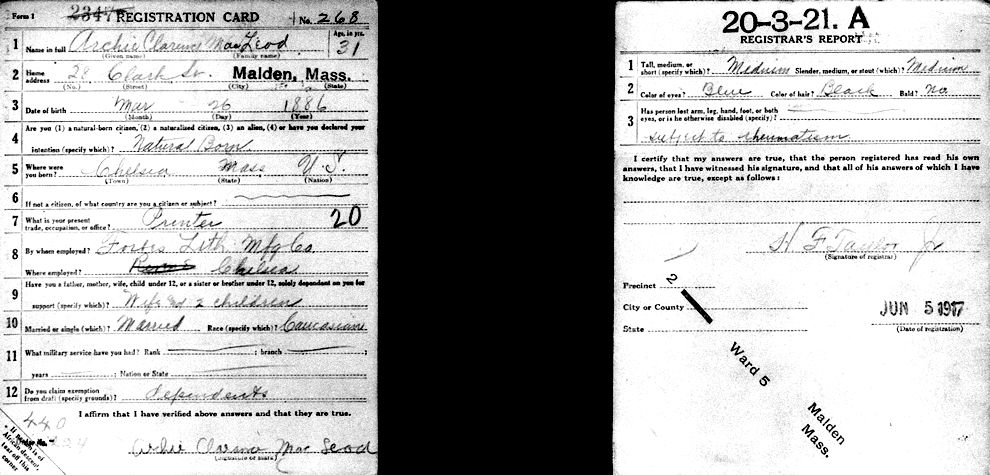 Form 1 2347 REGISTRATION CARD No. 268
1 Name in full Archie Clarence MacLeod Age, in yrs. 31
(Given name) (Family name)
2 Home address 28 Clark St. Malden, Mass.
(No.) (Street) (City) (State)
3 Date of birth Mar 26 1886
(Month) (Day) (Year)
4 Are you (1) a natural-born citizen, (2) a naturalized citizen, (3) an alien, (4) or have you declared your
intention (specify which)? Natural Born
5 Where were you born? Chelsea Mass U.S.
(Town) (State) (Nation)
6 If not a citizen, of what country are you a citizen or subject?
7 What is your present trade, occupation, or office? Printer 20
8 By whom employed? Forbes Lith Mfg Co.
Where employed? Chelsea
9 Have you a father, mother, wife, child under 12, or a sister or brother under 12, solely dependent on you for
support (specify which)? Wife and 2 children
10 Married or single (which)? Married Race (specify which)? Caucasian
11 What military service have you had? Rank ; branch ;
years ; Nation or State
12 Do you claim exemption from draft (specify grounds)? Dependents
I affirm that I have verified above answers and that they are true.
440
Archie Clarence MacLeod
(Signature or mark)
If person is of African descent, tear off this corner
20-3-21. A
REGISTRAR'S REPORT
1 Tall, medium, or short (specify which)? Medium Slender, medium, or stout (which)? Medium
2 Color of eyes? Blue Color of hair? Black Bald? No
3 Has person lost arm, leg, hand, foot, or both
eyes, or is he otherwise disabled (specify)?
subject to rheumatism
I certify that my answers are true, that the person registered has read his own
answers, that I have witnessed his signature, and that all of his answers of which I
have knowledge are true, except as follows:
H. F. Taylor Jr
(Signature of registrar)
Precinct 2
City or County
State
JUN 5 1917
(Date of registration)
Ward 5
Malden
Mass.